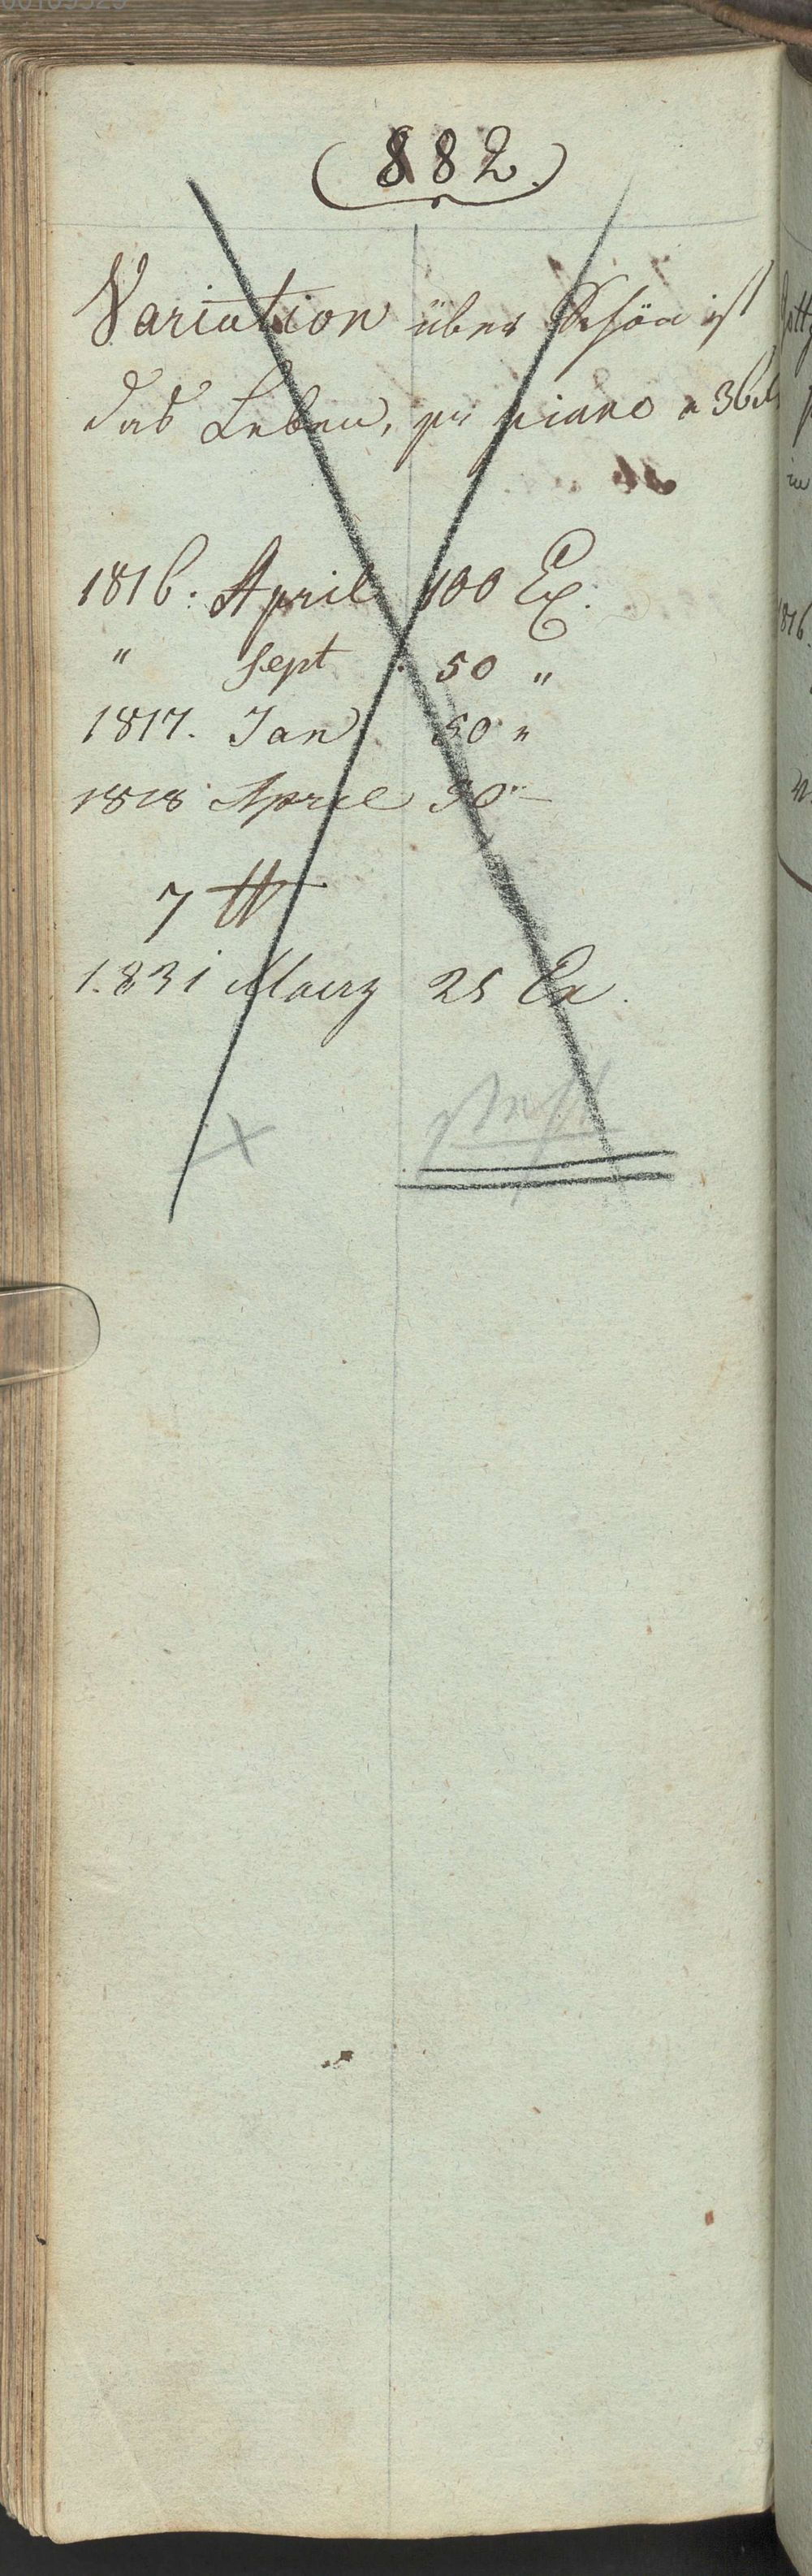 (882.)
Variation über Schön ist
das Leben, pr piano a 36 x
1816. April 100 Ex.
" Sept 50 "
1817. Jan 50 "
1818 April 50 "
7 tt
1831 Maerz 25 Ex.